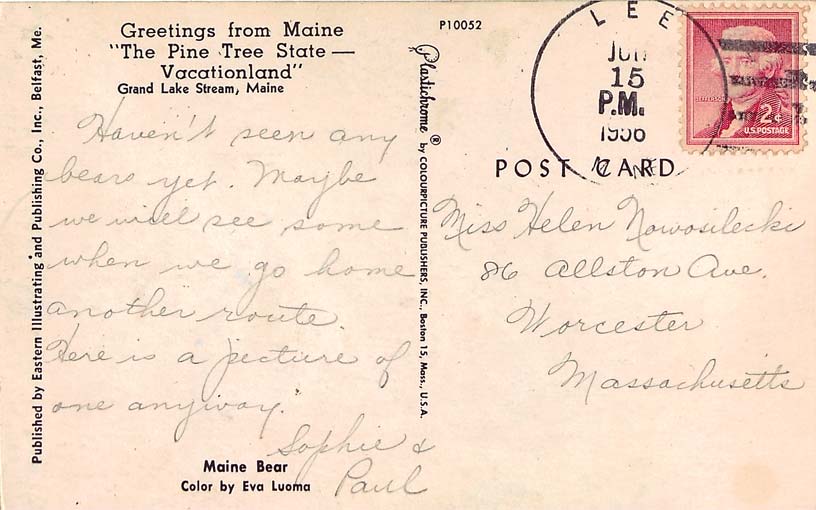 Greetings from Maine
"The Pine Tree State —
Vacationland"
Grand Lake Stream, Maine
Haven't seen any
bears yet. Maybe
we will see some
when we go home
another route.
Here is a picture of
one anyway.
Sophie &
Paul
Maine Bear
Color by Eva Luoma
Published by Eastern Illustrating and Publishing Co., Inc., Belfast, Me.
Plastichrome ® by COLOURPICTURE PUBLISHERS, INC., Boston 15, Mass., U.S.A.
P10052
LEE
JUN
15
P.M.
1956
MAINE
2¢
U.S. POSTAGE
POST CARD
Miss Helen Nowosilecki
86 Allston Ave.
Worcester
Massachusetts